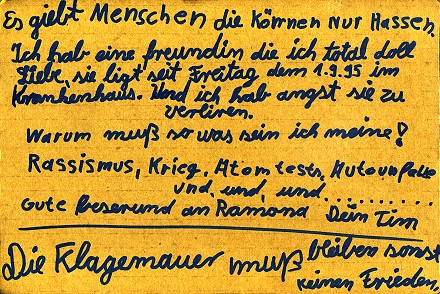 Es giebt Menschen die können nur Hassen.
Ich hab eine freundin die ich total doll
liebe, sie ligt seit Freitag dem 1.9.95 im
Krankenhaus. Und ich hab angst sie zu
verliren.
Warum muß so was sein ich meine!
Rassismus, Krieg, Atomtests, Autounfälle
und, und, und............
Gute Beserund an Ramona Dein Tim
Die Klagemauer muß bleiben sonst
keinen Frieden,